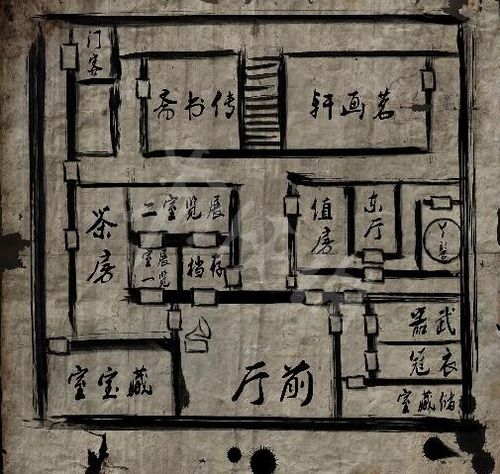 门客
传书斋
茗画轩
茶房
展览室二
展览室一
存档
值房
东厅
武器
衣冠
储藏室
藏宝室
前厅